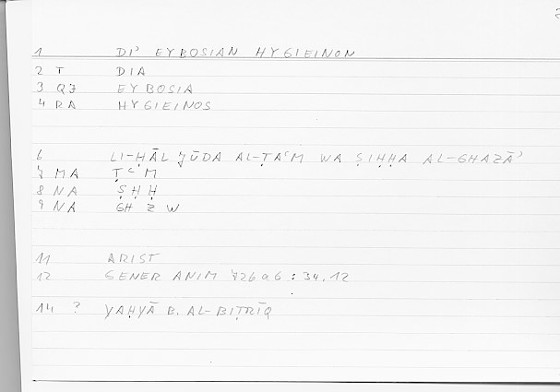 1 DI' EYBOSIAN HYGIEINON
2 T DIA
3 QJ EYBOSIA
4 RA HYGIEINOS
6 LI-ḤĀL ǦŪDA AL-ṬAʿM WA ṢIḤḤA AL-GHAZĀʾ
7 MA Ṭ ʿ M
8 NA Ṣ Ḥ Ḥ
9 NA GH Z W
11 ARIST
12 GENER ANIM 726a6 : 34.12
14 ? YAḤYĀ B. AL-BIṬRĪQ